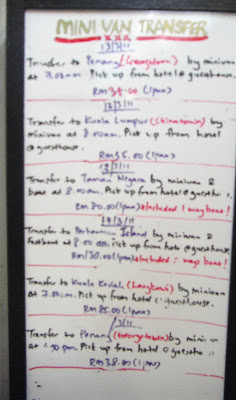 MINI VAN TRANSFER
x x x
13/3/11
Transfer to Penang (Georgetown) by minivan
at 7.00am. Pick up from hotel @ guesthouse.
RM 38.00 (1pax)
13/3/11
Transfer to Kuala Lumpur (Chinatown) by
minivan at 8.00am. Pick up from hotel
@ guesthouse.
RM 35.00 (1pax)
Transfer to Taman Negara by minivan &
boat at 8.00am. Pick up from hotel @ guesthouse.
RM 80.00 (1pax) *Included 1 way boat!
14/3/11
Transfer to Perhentian Island by minivan &
fastboat at 8.00 am pick up from hotel @ guesthouse.
RM 130.00 (1pax) Included 2 ways boat!
Transfer to Kuala Kedah (Langkawi) by minivan
at 7.00am. Pick up from hotel guesthouse.
RM 85.00 (1pax)
/3/11
Transfer to Penang (Georgetown) by minivan
at pm. Pick up from hotel @ guesthouse.
RM 38.00 (1pax)